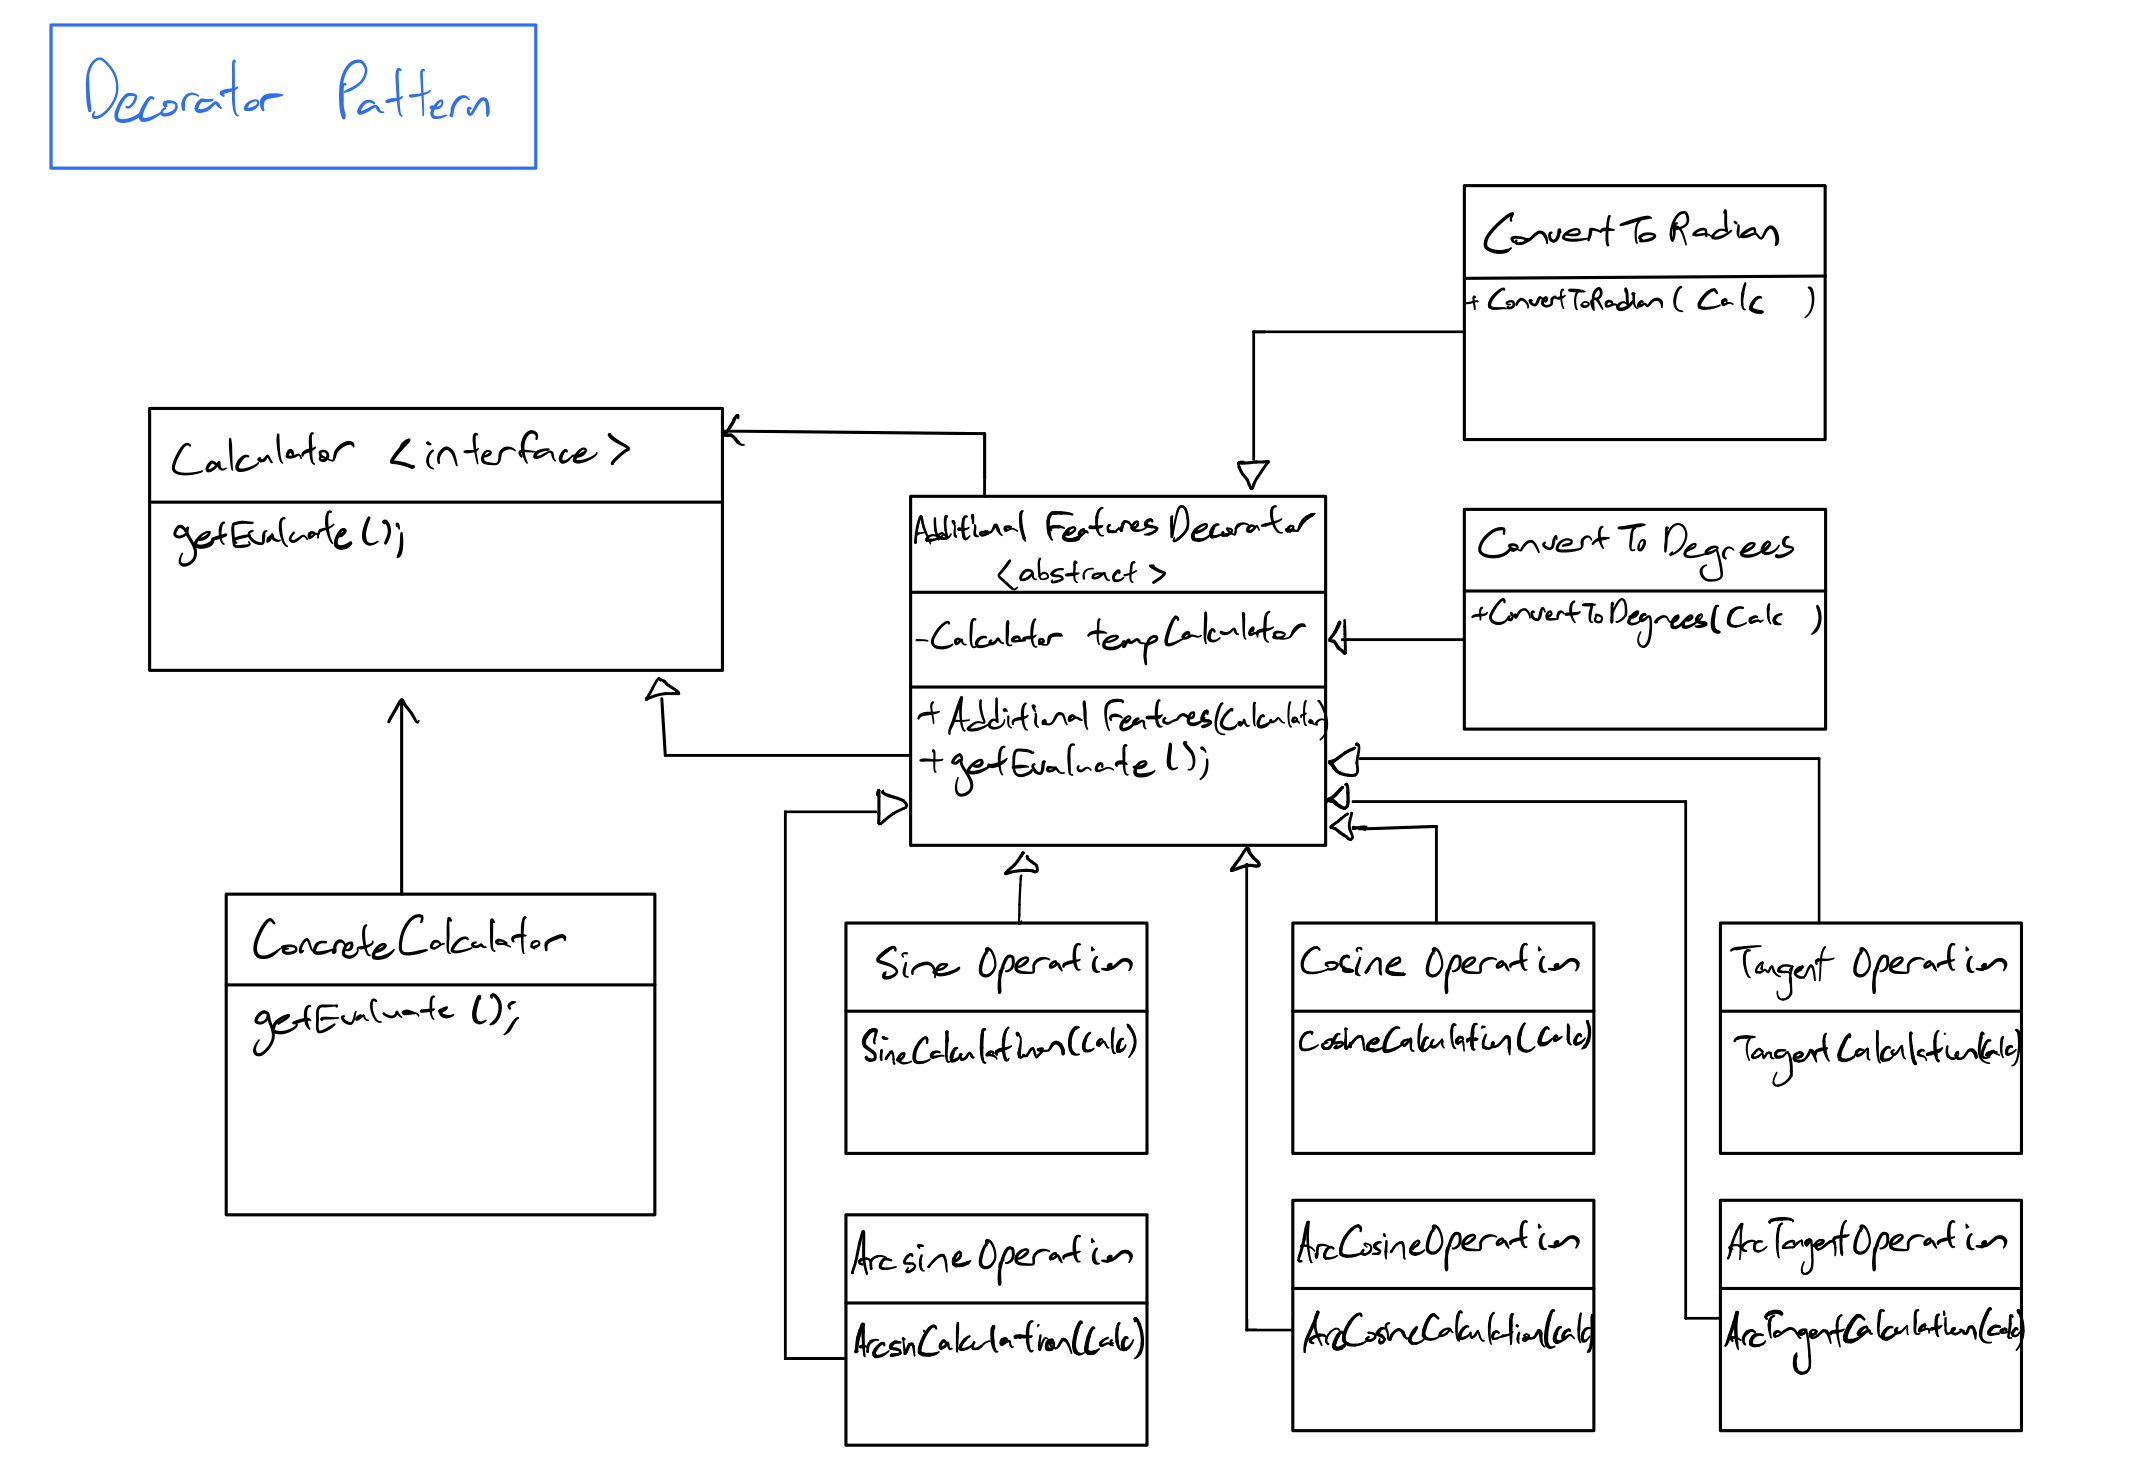 Decorator Pattern
ConvertToRadian
+ ConvertToRadian ( Calc )
Calculator <interface>
getEvaluate();
Additional Features Decorator
<abstract>
-Calculator tempCalculator
+ Additional Features(Calculator)
+ getEvaluate();
ConvertToDegrees
+ConvertToDegrees(Calc )
ConcreteCalculator
getEvaluate();
Sine Operation
SineCalculation(Calc)
Cosine Operation
CosineCalculation(Calc)
Tangent Operation
TangentCalculation(Calc)
ArcsineOperation
ArcsinCalculation(Calc)
ArcCosineOperation
ArcCosineCalculation(calc)
ArcTangentOperation
ArcTangentCalculation(calc)